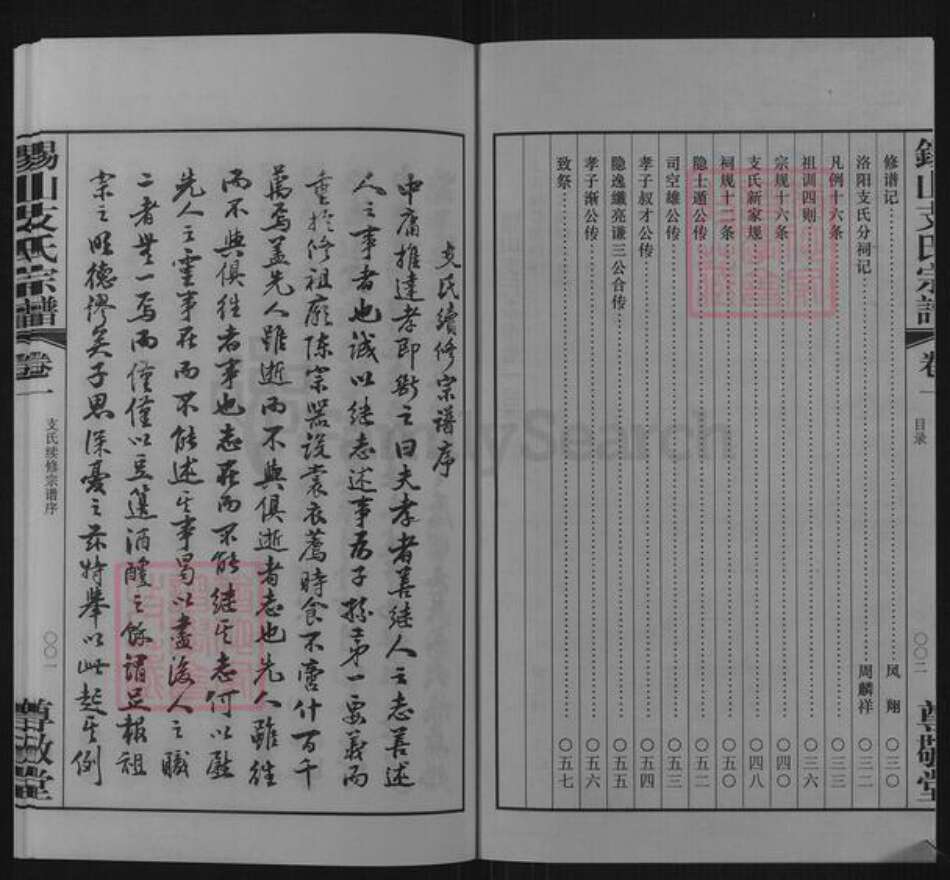 锡山支氏宗谱 卷一 目录 〇〇二 尊敬堂
修谱记……凤翔 〇三〇
洛阳支氏分祠记……周麟祥 〇三二
凡例十六条……〇三三
祖训四则……〇三六
宗规十六条……〇四〇
支氏新家规……〇四八
祠规十二条……〇五〇
隐士遁公传……〇五二
司空雄公传……〇五三
孝子叔才公传……〇五四
隐逸纖亮谦三公合传……〇五五
孝子渐公传……〇五六
致祭……〇五七
支氏續修宗譜序
中庸推達孝即斷之曰夫孝者善继人之志善述
人之事者也誠以继志述事為子孫第一要義而
重於修祖廟陈宗器設裳衣薦時食不啻什百千
萬焉盖先人雖逝而不與俱逝者志也先人雖往
而不與俱往者事也志在而不能继其志何以慰
先人之靈事在而不能述其事曷以盡後人之職
二者無一焉而僅僅以豆籩酒醴之餘謂足報祖
宗之明德谬矣子思深憂之故特舉以此起其例
锡山支氏宗谱 卷一 支氏续修宗谱序 〇〇一 尊敬堂
FamilySearch